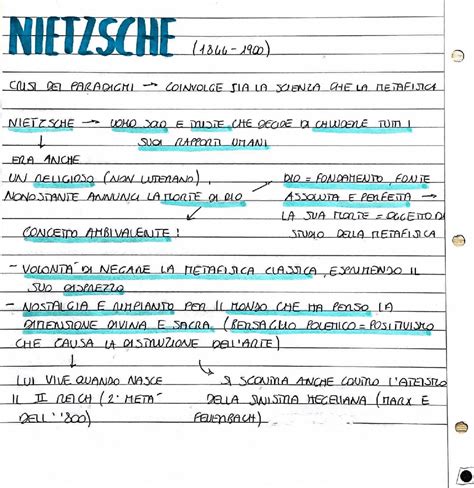 NIETZSCHE (1844-1900)
CRISI DEI PARADIGMI → COINVOLGE SIA LA SCIENZA CHE LA METAFISICA
NIETZSCHE → UOMO SOLO E TRISTE CHE DECIDE DI CHIUDERE TUTTI I
SUOI RAPPORTI UMANI
↓
ERA ANCHE
UN RELIGIOSO (NON LUTERANO),
NONOSTANTE ANNUNCI LA MORTE DI DIO
DIO = FONDAMENTO, FONTE
ASSOLUTA E PERFETTA →
LA SUA MORTE = OGGETTO DI
STUDIO DELLA METAFISICA
CONCETTO AMBIVALENTE!
- VOLONTÀ DI NEGARE LA METAFISICA CLASSICA, ESPRIMENDO IL
SUO DISPREZZO
- NOSTALGIA E RIMPIANTO PER IL MONDO CHE HA PERSO LA
DIMENSIONE DIVINA E SACRA (BERSAGLIO POLEMICO = POSITIVISMO
CHE CAUSA LA DISTRUZIONE DELL'ARTE)
LUI VIVE QUANDO NASCE
IL II REICH (2ª METÀ
DELL''800)
SI SCONTRA ANCHE CONTRO L'ATEISMO
DELLA SINISTRA HEGELIANA (MARX E
FEUERBACH)